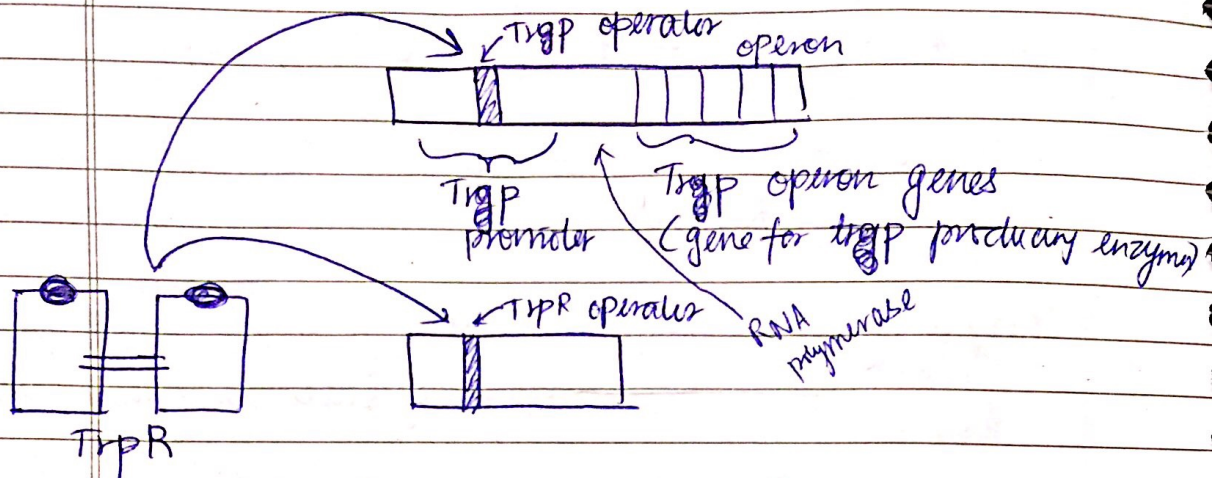 Trp operator
operon
Trp
promoter
Trp operon genes
(gene for trp producing enzyme)
TrpR operator
RNA
polymerase
TrpR